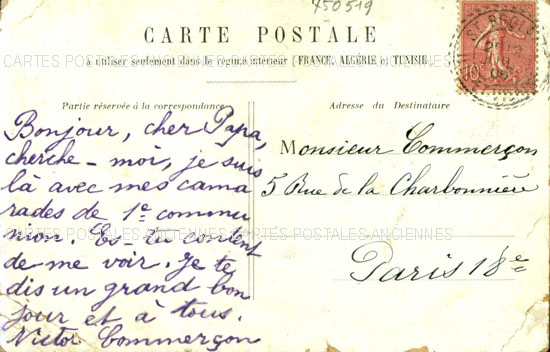 450519
CARTE POSTALE
à utiliser seulement dans le régime intérieur (FRANCE, ALGÉRIE et TUNISIE.
Partie réservée à la correspondance
Bonjour, cher Papa,
cherche-moi, je suis
là avec mes cama
rades de 1e commu
nion. Es-tu content
de me voir. Je te
dis un grand bon
jour et à tous.
Victor Commerçon
Adresse du Destinataire
Monsieur Commerçon
5 Rue de la Charbonnière
Paris 18e
10
CARTES POSTALES ANCIENNES CARTES POSTALES ANCIENNES